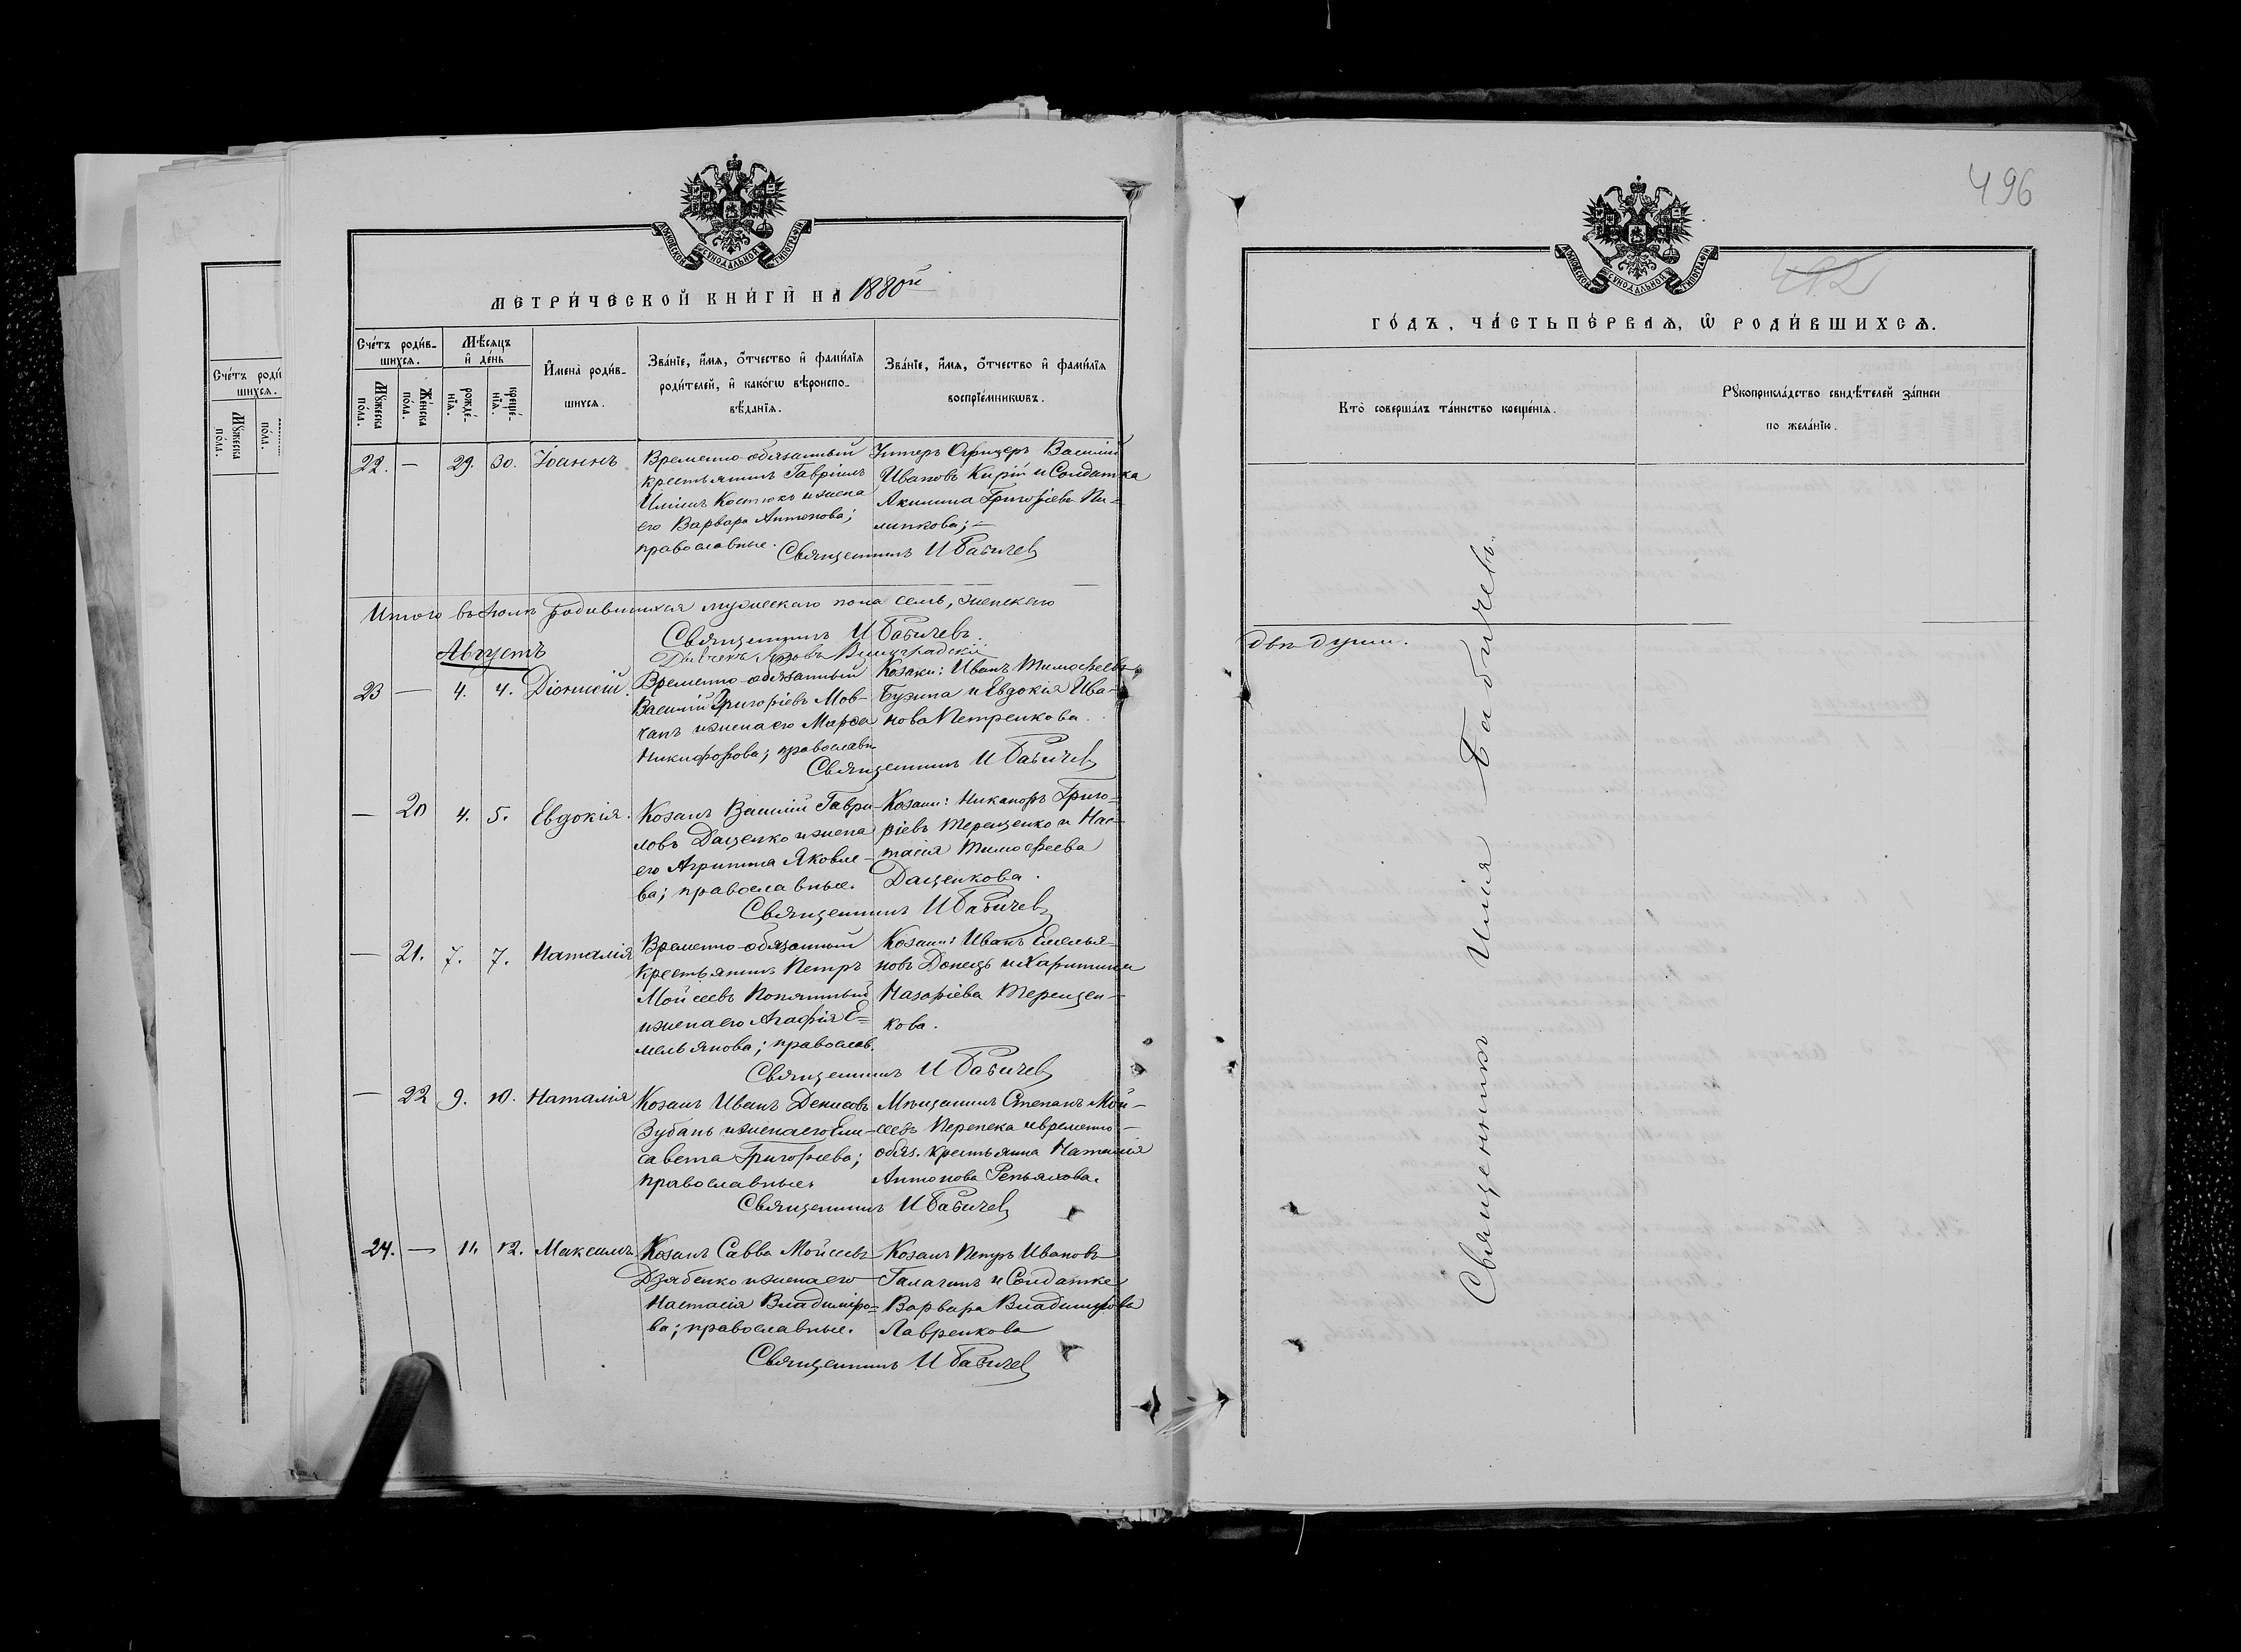 496
МОСКОВСКОЙ СѴНОДАЛЬНОЙ ТИПОГРАФІИ
МЕТРИ́ЧЕСКОЙ КНИ́ГИ НА 1880й
Сче́тъ роди́в-
шихсѧ.
Мѣ́сѧцъ
и҆ де́нь
Мꙋ́жеска по́ла.
Же́нска по́ла.
рожде́-
нїѧ.
креще́-
нїѧ.
И҆мена̀ роди́в-
шихсѧ.
Зва́нїе, и҆́мѧ, ѻ҆́тчество и҆ фами́лїѧ
роди́телей, и҆ како́гѡ вѣроиспо-
вѣ́данїѧ.
Зва́нїе, и҆́мѧ, ѻ҆́тчество и҆ фами́лїѧ
воспрїе́мникѡвъ.
22. — 29. 30. Іоаннъ
Временно-обязанный
крестьянинъ Гавріилъ
Иліинъ Костюкъ и жена
его Варвара Антонова;
православные.
Унтеръ Офицеръ Василій
Ивановъ Кирій и Солдатка
Акилина Григоріева Пи-
липкова; —
Священникъ И Бабичев
Итого въ Іюлѣ родившихся мужескаго пола семь, женскаго
Священникъ И Бабичевъ.
Августъ
23 — 4. 4. Діонисій.
Временно-обязанный
Василій Григоріевъ Мов-
чанъ и жена его Марѳа
Никифорова; православн
Козаки: Иванъ Тимофеевъ
Бузина и Евдокія Ива-
нова Петренкова.
Священникъ И Бабичев
— 20 4. 5. Евдокія.
Козакъ Василій Гаври-
ловъ Даценко и жена
его Агрипина Яковле-
ва; православные.
Козаки: Никаноръ Григо-
ріевъ Терещенко и Нас-
тасія Тимофеева
Даценкова.
Священникъ И Бабичев
— 21. 7. 7. Наталія
Временно-обязанный
крестьянинъ Петръ
Мойсеевъ Копятный
и жена его Агафія Е-
мельянова; православ.
Козаки: Иванъ Емелья-
новъ Донецъ и Харитина
Назаріева Терещен-
кова.
Священникъ И Бабичев
— 22 9. 10. Наталія
Козакъ Иванъ Денисовъ
Зубань и жена его Ели-
савета Григорьева;
православные.
Мѣщанинъ Степанъ Мой-
сеевъ Перепека и временно-
обяз. крестьянка Наталія
Антонова Репьяхова.
Священникъ И Бабичев
24. — 11. 12. Максимъ
Козакъ Савва Мойсеевъ
Дзябенко и жена его
Настасія Владиміро-
ва; православные.
Козакъ Петръ Ивановъ
Галаганъ и Солдатка
Варвара Владимірова
Лавренкова
Священникъ И Бабичев
МОСКОВСКОЙ СѴНОДАЛЬНОЙ ТИПОГРАФІИ
ГО́ДЪ, ЧА́СТЬ ПЕ́РВАѦ, Ѡ҆ РОДИ́ВШИХСѦ.
Кто̀ соверша́лъ та́инство креще́нїѧ.
Рꙋкоприкла́дство свидѣ́телей за́писи
по жела́нїю.
двѣ души.
Священникъ Илія Бабичевъ.
Сче́тъ роди́
шихсѧ.
Мꙋ́жеска по́ла.
по́ла.